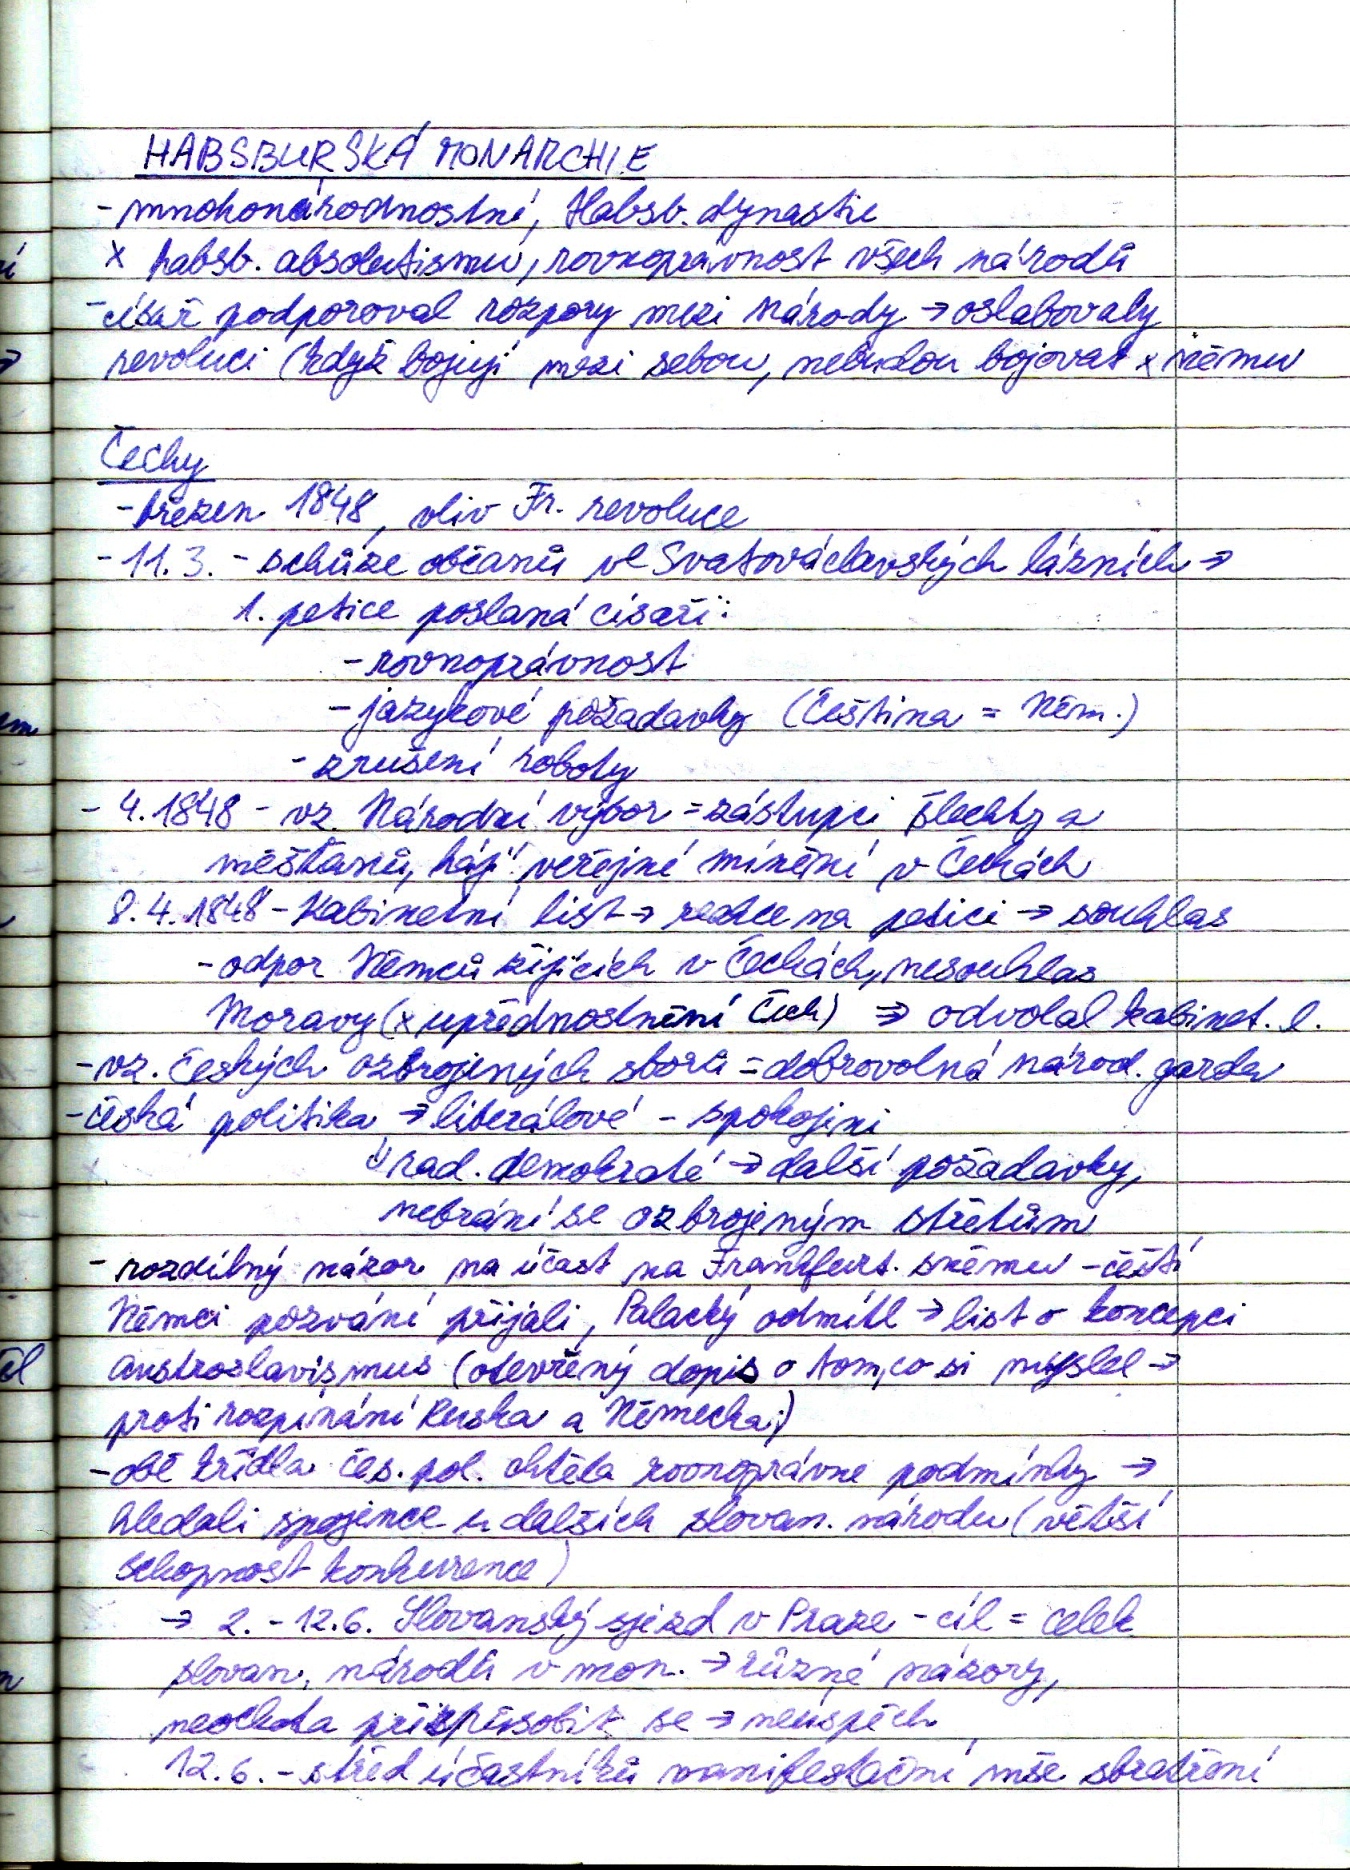 HABSBURSKÁ MONARCHIE
- mnohonárodnostní, Habsb. dynastie
x habsb. absolutismu, rovnoprávnost všech národů
- císař podporoval rozpory mezi národy → oslabovaly
revoluci (když bojují mezi sebou, nebudou bojovat x němu
Čechy
- březen 1848, vliv Fr. revoluce
- 11.3. - schůze občanů ve Svatováclavských lázních →
1. petice poslaná císaři:
- rovnoprávnost
- jazykové požadavky (čeština = něm.)
- zrušení roboty
- 4.1848 - vz. Národní výbor = zástupci šlechty a
měšťanů, hájí veřejné mínění v Čechách
8.4.1848 - Kabinetní list → reakce na petici → souhlas
- odpor Němců žijících v Čechách, nesouhlas
Moravy (x upřednostnění Čech) ⇒ odvolal kabinet. l.
- vz. českých ozbrojených sborů = dobrovolná národ. garda
- česká politika → liberálové - spokojeni
↓ rad. demokraté → další požadavky,
nebrání se ozbrojeným střetům
- rozdílný názor na účast na Frankfurt. sněmu - čeští
Němci pozvání přijali, Palacký odmítl → list o koncepci
austroslavismus (otevřený dopis o tom, co si myslel →
proti rozpínání Ruska a Německa)
- obě křídla čes. pol. chtěla rovnoprávné podmínky →
hledali spojence u dalších slovan. národu (větší
schopnost konkurence)
→ 2. - 12.6. Slovanský sjezd v Praze - cíl = celek
slovan. národů v mon. → různé názory,
neochota přizpůsobit se → neúspěch
12.6. - střed účastníků manifestační mše sbratření